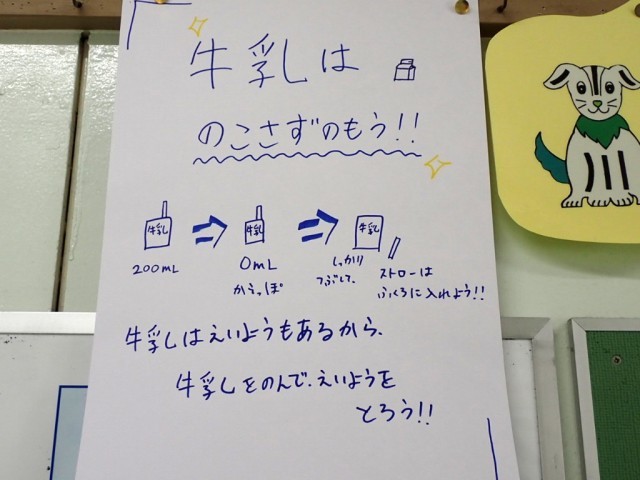 牛乳は
のこさずのもう!!
牛乳 牛乳 牛乳
200mL
0mL
からっぽ
しっかり
つぶして、
ストローは
ふくろに入れよう!!
牛乳はえいようもあるから、
牛乳をのんで、えいようを
とろう!!